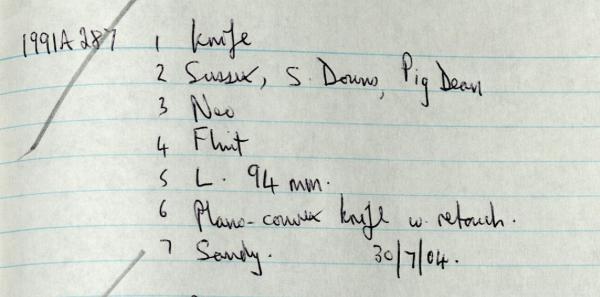 1991A 287 1 Knife
2 Sussex, S. Downs, Pig Dean
3 Neo
4 Flint
5 L. 94 mm.
6 Plano-convex knife w. retouch.
7 Sandy. 30/7/04.